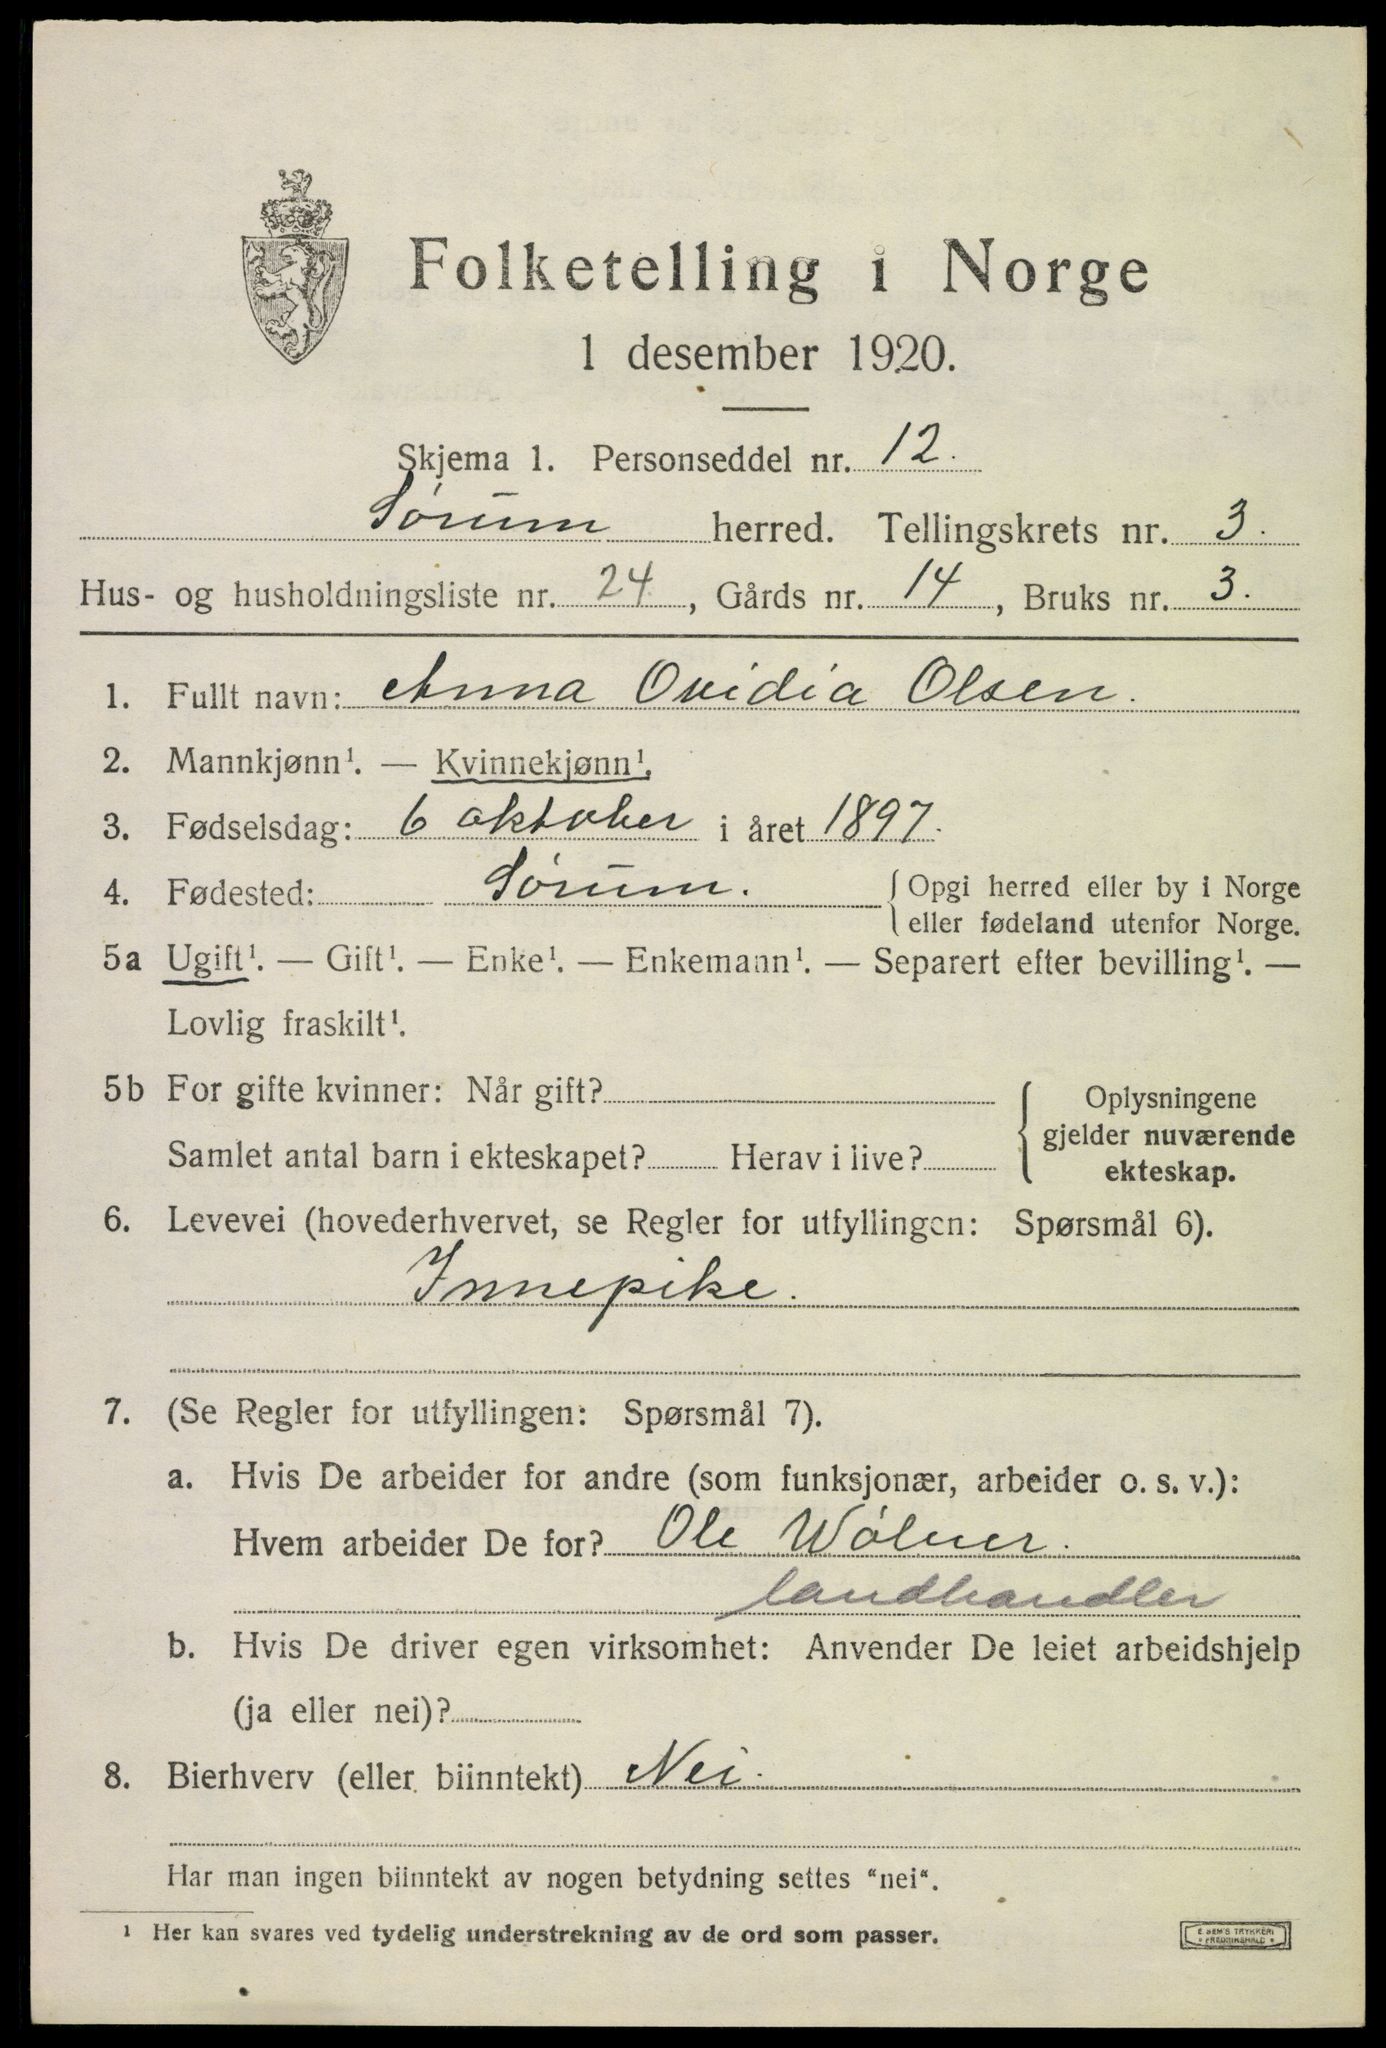 Folketelling i Norge
1 desember 1920.
Skjema 1. Personseddel nr. 12.
Sørum herred. Tellingskrets nr. 3.
Hus- og husholdningsliste nr. 24, Gårds nr. 14, Bruks nr. 3.
1. Fullt navn: Anna Ovidia Olsen.
2. Mannkjønn¹. — Kvinnekjønn¹.
3. Fødselsdag: 6 oktober i året 1897.
4. Fødested: Sørum. { Opgi herred eller by i Norge
eller fødeland utenfor Norge.
5a Ugift¹. — Gift¹. — Enke¹. — Enkemann¹. — Separert efter bevilling¹. —
Lovlig fraskilt¹.
5b For gifte kvinner: Når gift?
Samlet antal barn i ekteskapet? Herav i live?
Oplysningene
gjelder nuværende
ekteskap.
6. Levevei (hovederhvervet, se Regler for utfyllingen: Spørsmål 6).
Innepike.
7. (Se Regler for utfyllingen: Spørsmål 7).
a. Hvis De arbeider for andre (som funksjonær, arbeider o. s. v.):
Hvem arbeider De for? Ole Wølner.
landhandler
b. Hvis De driver egen virksomhet: Anvender De leiet arbeidshjelp
(ja eller nei)?
8. Bierhverv (eller biinntekt) Nei.
Har man ingen biinntekt av nogen betydning settes "nei".
¹ Her kan svares ved tydelig understrekning av de ord som passer.
E. SEM'S TRYKKERI
FREDRIKSHALD